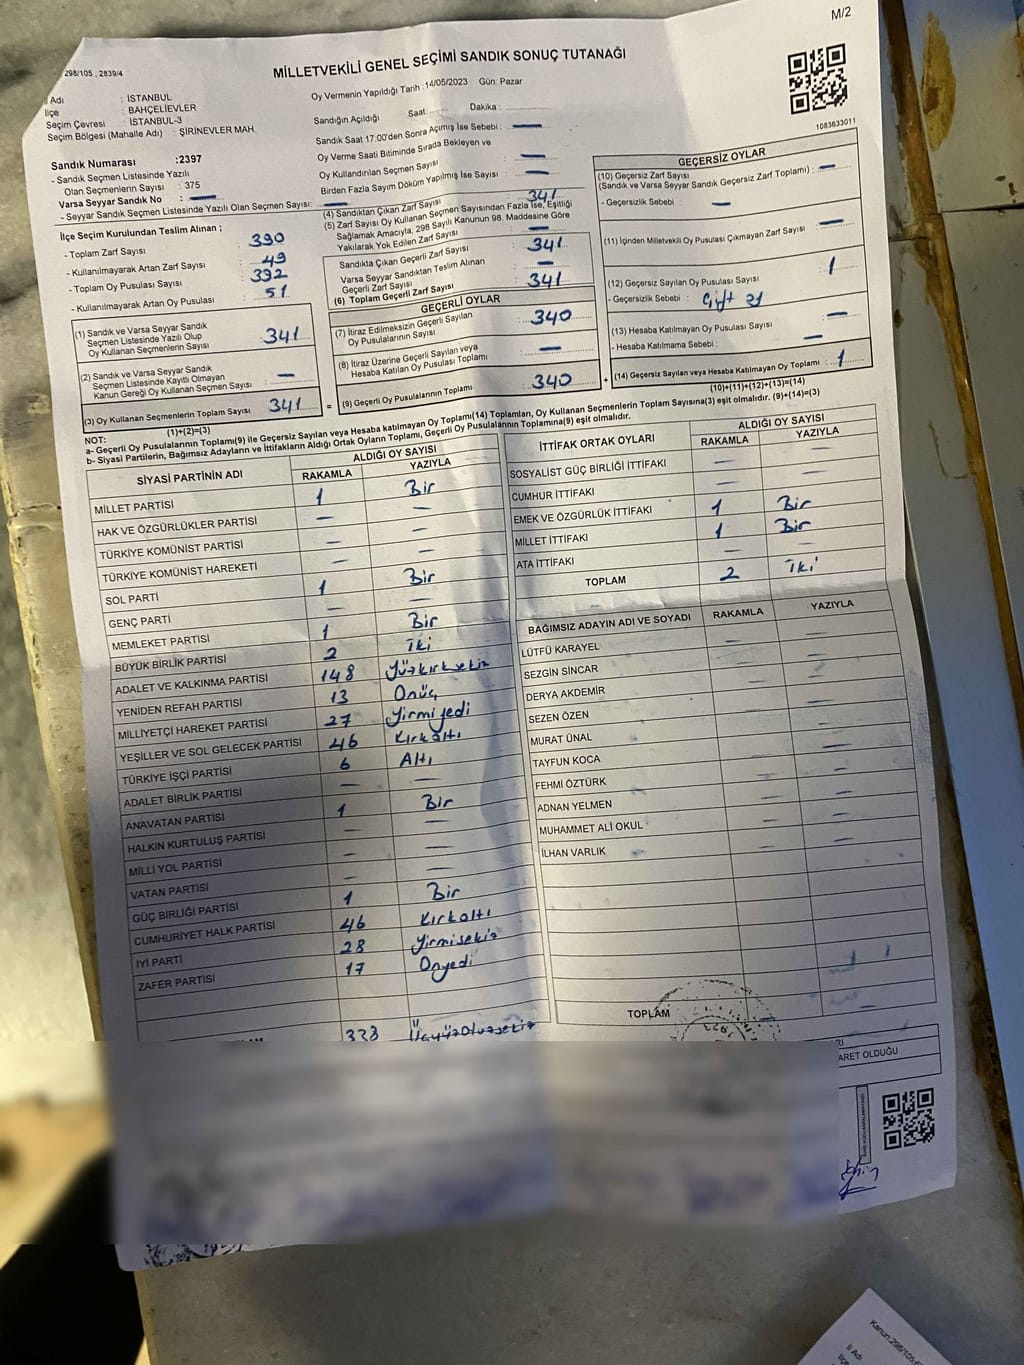 M/2
298/105 , 2839/4
MİLLETVEKİLİ GENEL SEÇİMİ SANDIK SONUÇ TUTANAĞI
İl Adı : İSTANBUL
İlçe : BAHÇELİEVLER
Seçim Çevresi : İSTANBUL-3
Seçim Bölgesi (Mahalle Adı) : ŞİRİNEVLER MAH.
Oy Vermenin Yapıldığı Tarih :14/05/2023 Gün: Pazar
Sandığın Açıldığı Saat Dakika :
Sandık Saat 17:00'den Sonra Açılmış İse Sebebi : —
Oy Verme Saati Bitiminde Sırada Bekleyen ve
Oy Kullandırılan Seçmen Sayısı : —
Birden Fazla Sayım Döküm Yapılmış İse Sayısı : —
1083633011
Sandık Numarası :2397
- Sandık Seçmen Listesinde Yazılı
Olan Seçmenlerin Sayısı : 375
Varsa Seyyar Sandık No : —
- Seyyar Sandık Seçmen Listesinde Yazılı Olan Seçmen Sayısı: —
İlçe Seçim Kurulundan Teslim Alınan ;
- Toplam Zarf Sayısı : 390
- Kullanılmayarak Artan Zarf Sayısı : 49
- Toplam Oy Pusulası Sayısı : 392
- Kullanılmayarak Artan Oy Pusulası : 51
(1) Sandık ve Varsa Seyyar Sandık
Seçmen Listesinde Yazılı Olup
Oy Kullanan Seçmenlerin Sayısı : 341
(2) Sandık ve Varsa Seyyar Sandık
Seçmen Listesinde Kayıtlı Olmayan
Kanun Gereği Oy Kullanan Seçmen Sayısı : —
(3) Oy Kullanan Seçmenlerin Toplam Sayısı 341
(1)+(2)=(3)
(4) Sandıktan Çıkan Zarf Sayısı : 341
(5) Zarf Sayısı Oy Kullanan Seçmen Sayısından Fazla İse, Eşitliği
Sağlamak Amacıyla, 298 Sayılı Kanunun 98. Maddesine Göre
Yakılarak Yok Edilen Zarf Sayısı : —
Sandıkta Çıkan Geçerli Zarf Sayısı : 341
Varsa Seyyar Sandıktan Teslim Alınan
Geçerli Zarf Sayısı : —
(6) Toplam Geçerli Zarf Sayısı : 341
GEÇERLİ OYLAR
(7) İtiraz Edilmeksizin Geçerli Sayılan
Oy Pusulalarının Sayısı : 340
(8) İtiraz Üzerine Geçerli Sayılan veya
Hesaba Katılan Oy Pusulası Toplamı : —
= (9) Geçerli Oy Pusulalarının Toplamı : 340 +
GEÇERSİZ OYLAR
(10) Geçersiz Zarf Sayısı
(Sandık ve Varsa Seyyar Sandık Geçersiz Zarf Toplamı) : —
- Geçersizlik Sebebi : —
(11) İçinden Milletvekili Oy Pusulası Çıkmayan Zarf Sayısı : —
(12) Geçersiz Sayılan Oy Pusulası Sayısı : 1
- Geçersizlik Sebebi :
(13) Hesaba Katılmayan Oy Pusulası Sayısı : —
- Hesaba Katılmama Sebebi : —
(14) Geçersiz Sayılan veya Hesaba Katılmayan Oy Toplamı : 1
(10)+(11)+(12)+(13)=(14)
NOT:
a- Geçerli Oy Pusulalarının Toplamı(9) ile Geçersiz Sayılan veya Hesaba katılmayan Oy Toplamı(14) Toplamları, Oy Kullanan Seçmenlerin Toplam Sayısına(3) eşit olmalıdır. (9)+(14)=(3)
b- Siyasi Partilerin, Bağımsız Adayların ve İttifakların Aldığı Ortak Oyların Toplamı, Geçerli Oy Pusulalarının Toplamına(9) eşit olmalıdır.
SİYASİ PARTİNİN ADI ALDIĞI OY SAYISI
RAKAMLA YAZIYLA
MİLLET PARTİSİ 1 Bir
HAK VE ÖZGÜRLÜKLER PARTİSİ — —
TÜRKİYE KOMÜNİST PARTİSİ — —
TÜRKİYE KOMÜNİST HAREKETİ — —
SOL PARTİ 1 Bir
GENÇ PARTİ — —
MEMLEKET PARTİSİ 1 Bir
BÜYÜK BİRLİK PARTİSİ 2 İki
ADALET VE KALKINMA PARTİSİ 148 Yüzkırksekiz
YENİDEN REFAH PARTİSİ 13 Onüç
MİLLİYETÇİ HAREKET PARTİSİ 27 Yirmiyedi
YEŞİLLER VE SOL GELECEK PARTİSİ 46 Kırkaltı
TÜRKİYE İŞÇİ PARTİSİ 6 Altı
ADALET BİRLİK PARTİSİ — —
ANAVATAN PARTİSİ 1 Bir
HALKIN KURTULUŞ PARTİSİ — —
MİLLİ YOL PARTİSİ — —
VATAN PARTİSİ — —
GÜÇ BİRLİĞİ PARTİSİ 1 Bir
CUMHURİYET HALK PARTİSİ 46 Kırkaltı
İYİ PARTİ 28 Yirmisekiz
ZAFER PARTİSİ 17 Onyedi
338 Üçyüzotuzsekiz
İTTİFAK ORTAK OYLARI ALDIĞI OY SAYISI
RAKAMLA YAZIYLA
SOSYALİST GÜÇ BİRLİĞİ İTTİFAKI — —
CUMHUR İTTİFAKI — —
EMEK VE ÖZGÜRLÜK İTTİFAKI 1 Bir
MİLLET İTTİFAKI 1 Bir
ATA İTTİFAKI — —
TOPLAM 2 İki
BAĞIMSIZ ADAYIN ADI VE SOYADI RAKAMLA YAZIYLA
LÜTFÜ KARAYEL — —
SEZGİN SİNCAR — —
DERYA AKDEMİR — —
SEZEN ÖZEN — —
MURAT ÜNAL — —
TAYFUN KOCA — —
FEHMİ ÖZTÜRK — —
ADNAN YELMEN — —
MUHAMMET ALİ OKUL — —
İLHAN VARLIK — —
TOPLAM —
ARET OLDUĞU
Kanun:298/105
İl Adı